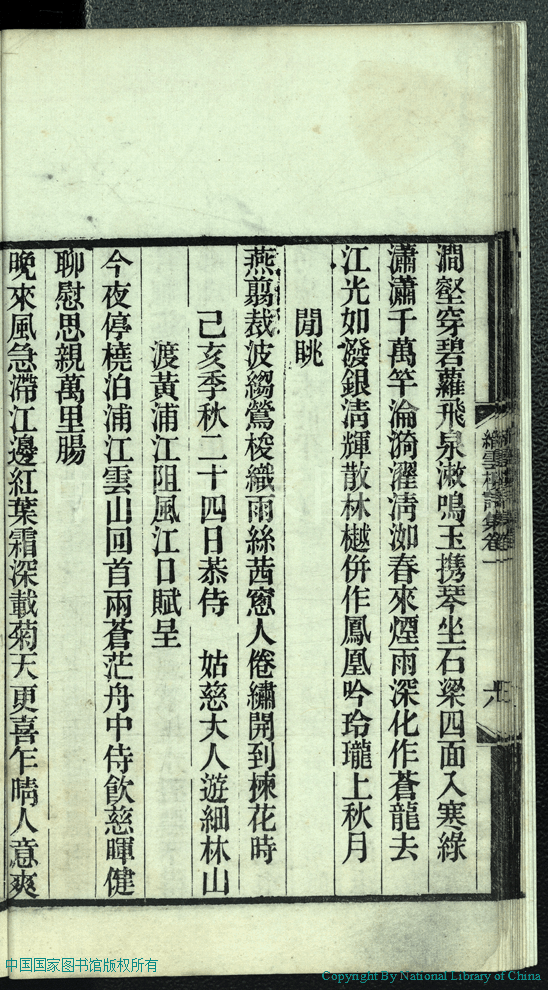 澗壑穿碧蘿飛泉漱鳴玉携琴坐石梁四面入寒綠
瀟瀟千萬竿淪漪濯淸泇春來煙雨深化作蒼龍去
江光如潑銀淸輝散林樾併作鳳凰吟玲瓏上秋月
閒眺
燕翦裁波縐鶯梭織雨絲茜窻人倦繡開到揀花時
己亥季秋二十四日恭侍 姑慈大人遊細林山
渡黃浦江阻風江口賦呈
今夜停橈泊浦江雲山回首兩蒼茫舟中侍飮慈暉健
聊慰思親萬里腸
晚來風急滯江邊紅葉霜深載菊天更喜乍晴人意爽
雲 詩集卷一
六
中国国家图书馆版权所有
Copyright By National Library of China